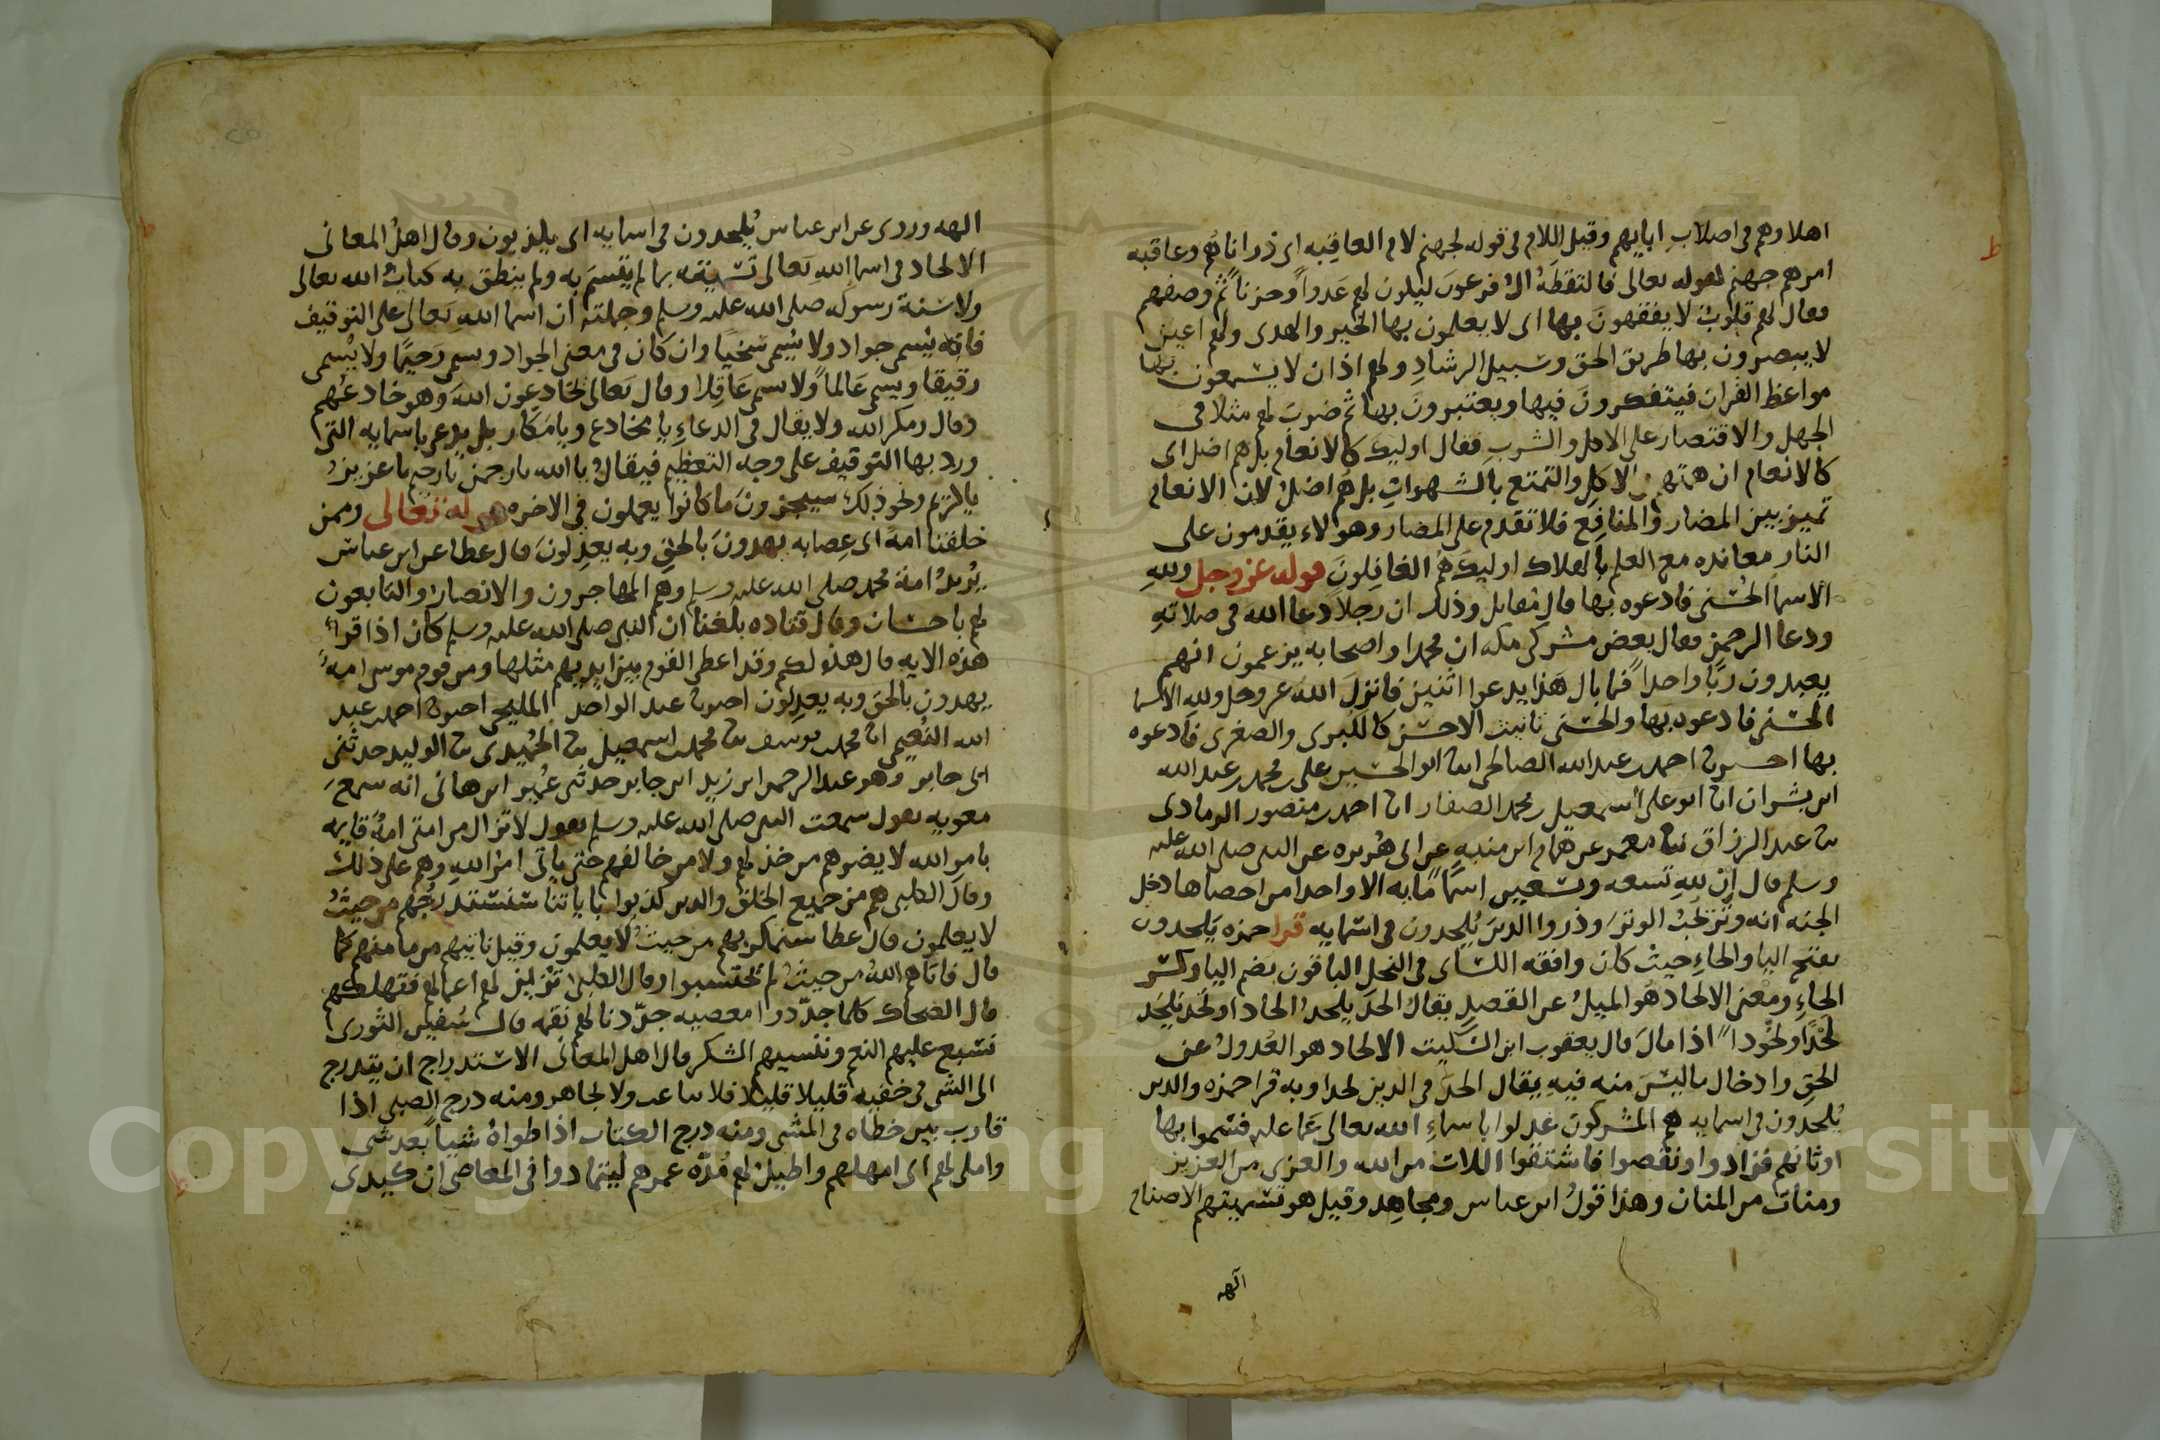 اهلا وهم في اصلاب ابايهم وقيل اللام في قوله لجهنم لام العاقبه اى ذراناهم وعاقبه
امرهم جهنم لقوله تعالى فالتقطه ال فرعون ليكون لهم عدوا وحزنا ثم وصفهم
فقال لهم قلوب لا يفقهون بها اى لا يعلمون بها الخير والهدى ولهم اعين
لا يبصرون بها طريق الحق وسبيل الرشاد ولهم اذان لا يسمعون بها
مواعظ القران فيتفكرون فيها ويعتبرون بها ثم ضرب لهم مثلا في
الجهل والاقتصار على الاكل والشرب فقال اوليك كالانعام بل هم اضل اى
كالانعام ان همتهم الاكل والتمتع بالشهوات بل هم اضل لان الانعام
تميز بين المضار والمنافع فلا تقدم على المضار وهولاء يقدمون على
النار معانده مع العلم بالهلاك اوليك هم الغافلون قوله عز وجل ولله
الاسما الحسنى فادعوه بها قال مقاتل وذلك ان رجلا دعا الله في صلاته
ودعا الرحمن فقال بعض مشركى مكه ان محمدا واصحابه يزعمون انهم
يعبدون ربا واحدا فما بال هذا يدعوا اثنين فانزل الله عز وجل ولله الاسما
الحسنى فادعوه بها والحسنى تانيث الاحسن كالكبرى والصغرى فادعوه
بها احمد بن عبد الله الصالحى انا ابو الحسين على بن محمد بن عبد الله
ابن بشران انا ابو على اسمعيل بن محمد الصفار انا احمد بن منصور الرمادى
نا عبد الرزاق نا معمر عن همام ابن منبه عن ابى هريره عن النبى صلى الله عليه
وسلم قال ان لله تسعه وتسعين اسما مايه الا واحدا من احصاها دخل
الجنه انه وتر يحب الوتر وذروا الذين يلحدون في اسمايه قرا حمزه يلحدون
بفتح اليا والحاء حيث كان وافقه الكساى في النحل الباقون بضم اليا وكسر
الحاء ومعنى الالحاد هو الميل عن القصد يقال الحد يلحد الحادا ولحد يلحد
لحدا ولحودا اذا مال قال يعقوب ابن السكيت الالحاد هو العدول عن
الحق وادخال ما ليس منه فيه يقال الحد في الدين لحد وبه قرا حمزه والذين
يلحدون في اسمايه هم المشركون عدلوا باسماء الله تعالى عما عليه فسموا بها
اوثانهم فزادوا ونقصوا فاشتقوا اللات من الله والعزى من العزيز
ومنات من المنان وهذا قول ابن عباس ومجاهد وقيل هو تسميتهم الاصنام
الهه
الهه وروى عن ابن عباس يلحدون في اسمايه اى يكذبون وقال اهل المعانى
الالحاد في اسما الله تعالى تسميته بما لم يتسم به ولم ينطق به كتاب الله تعالى
ولا سنة رسوله صلى الله عليه وسلم وجملته ان اسما الله تعالى على التوقيف
فانه يسمى جواد ولا يسمى سخيا وان كان في معنى الجواد ويسمى رحيما ولا يسمى
رقيقا ويسمى عالما ولا يسمى عاقلا وقال تعالى يخادعون الله وهو خادعهم
وقال ومكر الله ولا يقال في الدعاء يا مخادع ويا مكار بل يدعى باسمايه التى
ورد بها التوقيف على وجه التعظيم فيقال يا الله يا رحمن يا رحيم يا عزيز
يا كريم ونحو ذلك سيجزون ما كانوا يعملون في الاخره قوله تعالى وممن
خلقنا امة اى عصابه يهدون بالحق وبه يعدلون قال عطا عن ابن عباس
يريد امة محمد صلى الله عليه وسلم وهم المهاجرون والانصار والتابعون
لهم باحسان وقال قتاده بلغنا ان النبى صلى الله عليه وسلم كان اذا قرا
هذه الايه قال هذه لكم وقد اعطى القوم بين ايديهم مثلها ومن قوم موسى امة
يهدون بالحق وبه يعدلون عبد الواحد المليحى احمد بن عبد
الله النعيمى انا محمد بن يوسف نا محمد بن اسمعيل نا الحميدى نا الوليد حدثنى
ابن جابر وهو عبد الرحمن ابن زيد ابن جابر حدثنى عمير ابن هانى انه سمع
معويه يقول سمعت النبى صلى الله عليه وسلم يقول لا تزال من امتى امة قايمه
بامر الله لا يضرهم من خذلهم ولا من خالفهم حتى ياتى امر الله وهم على ذلك
وقال الكلبى هم من جميع الخلق والذين كذبوا باياتنا سنستدرجهم من حيث
لا يعلمون قال عطا سنمكر بهم من حيث لا يعلمون وقيل ناتيهم من مامنهم كما
قال فاتاهم الله من حيث لم يحتسبوا وقال الكلبى نزين لهم اعمالهم فنهلكهم
قال الضحاك كلما جددوا معصيه جددنا لهم نعمه قال سفين الثورى
نسبغ عليهم النعم وننسيهم الشكر قال اهل المعانى الاستدراج ان يتدرج
الى الشى في خفيه قليلا قليلا فلا يباغت ولا يجاهر ومنه درج الصبى اذا
قارب بين خطاه في المشى ومنه درج الكتاب اذا طواه شيا بعد شى
واملى لهم اى امهلهم واطيل لهم مدة عمرهم ليتمادوا في المعاصى ان كيدى